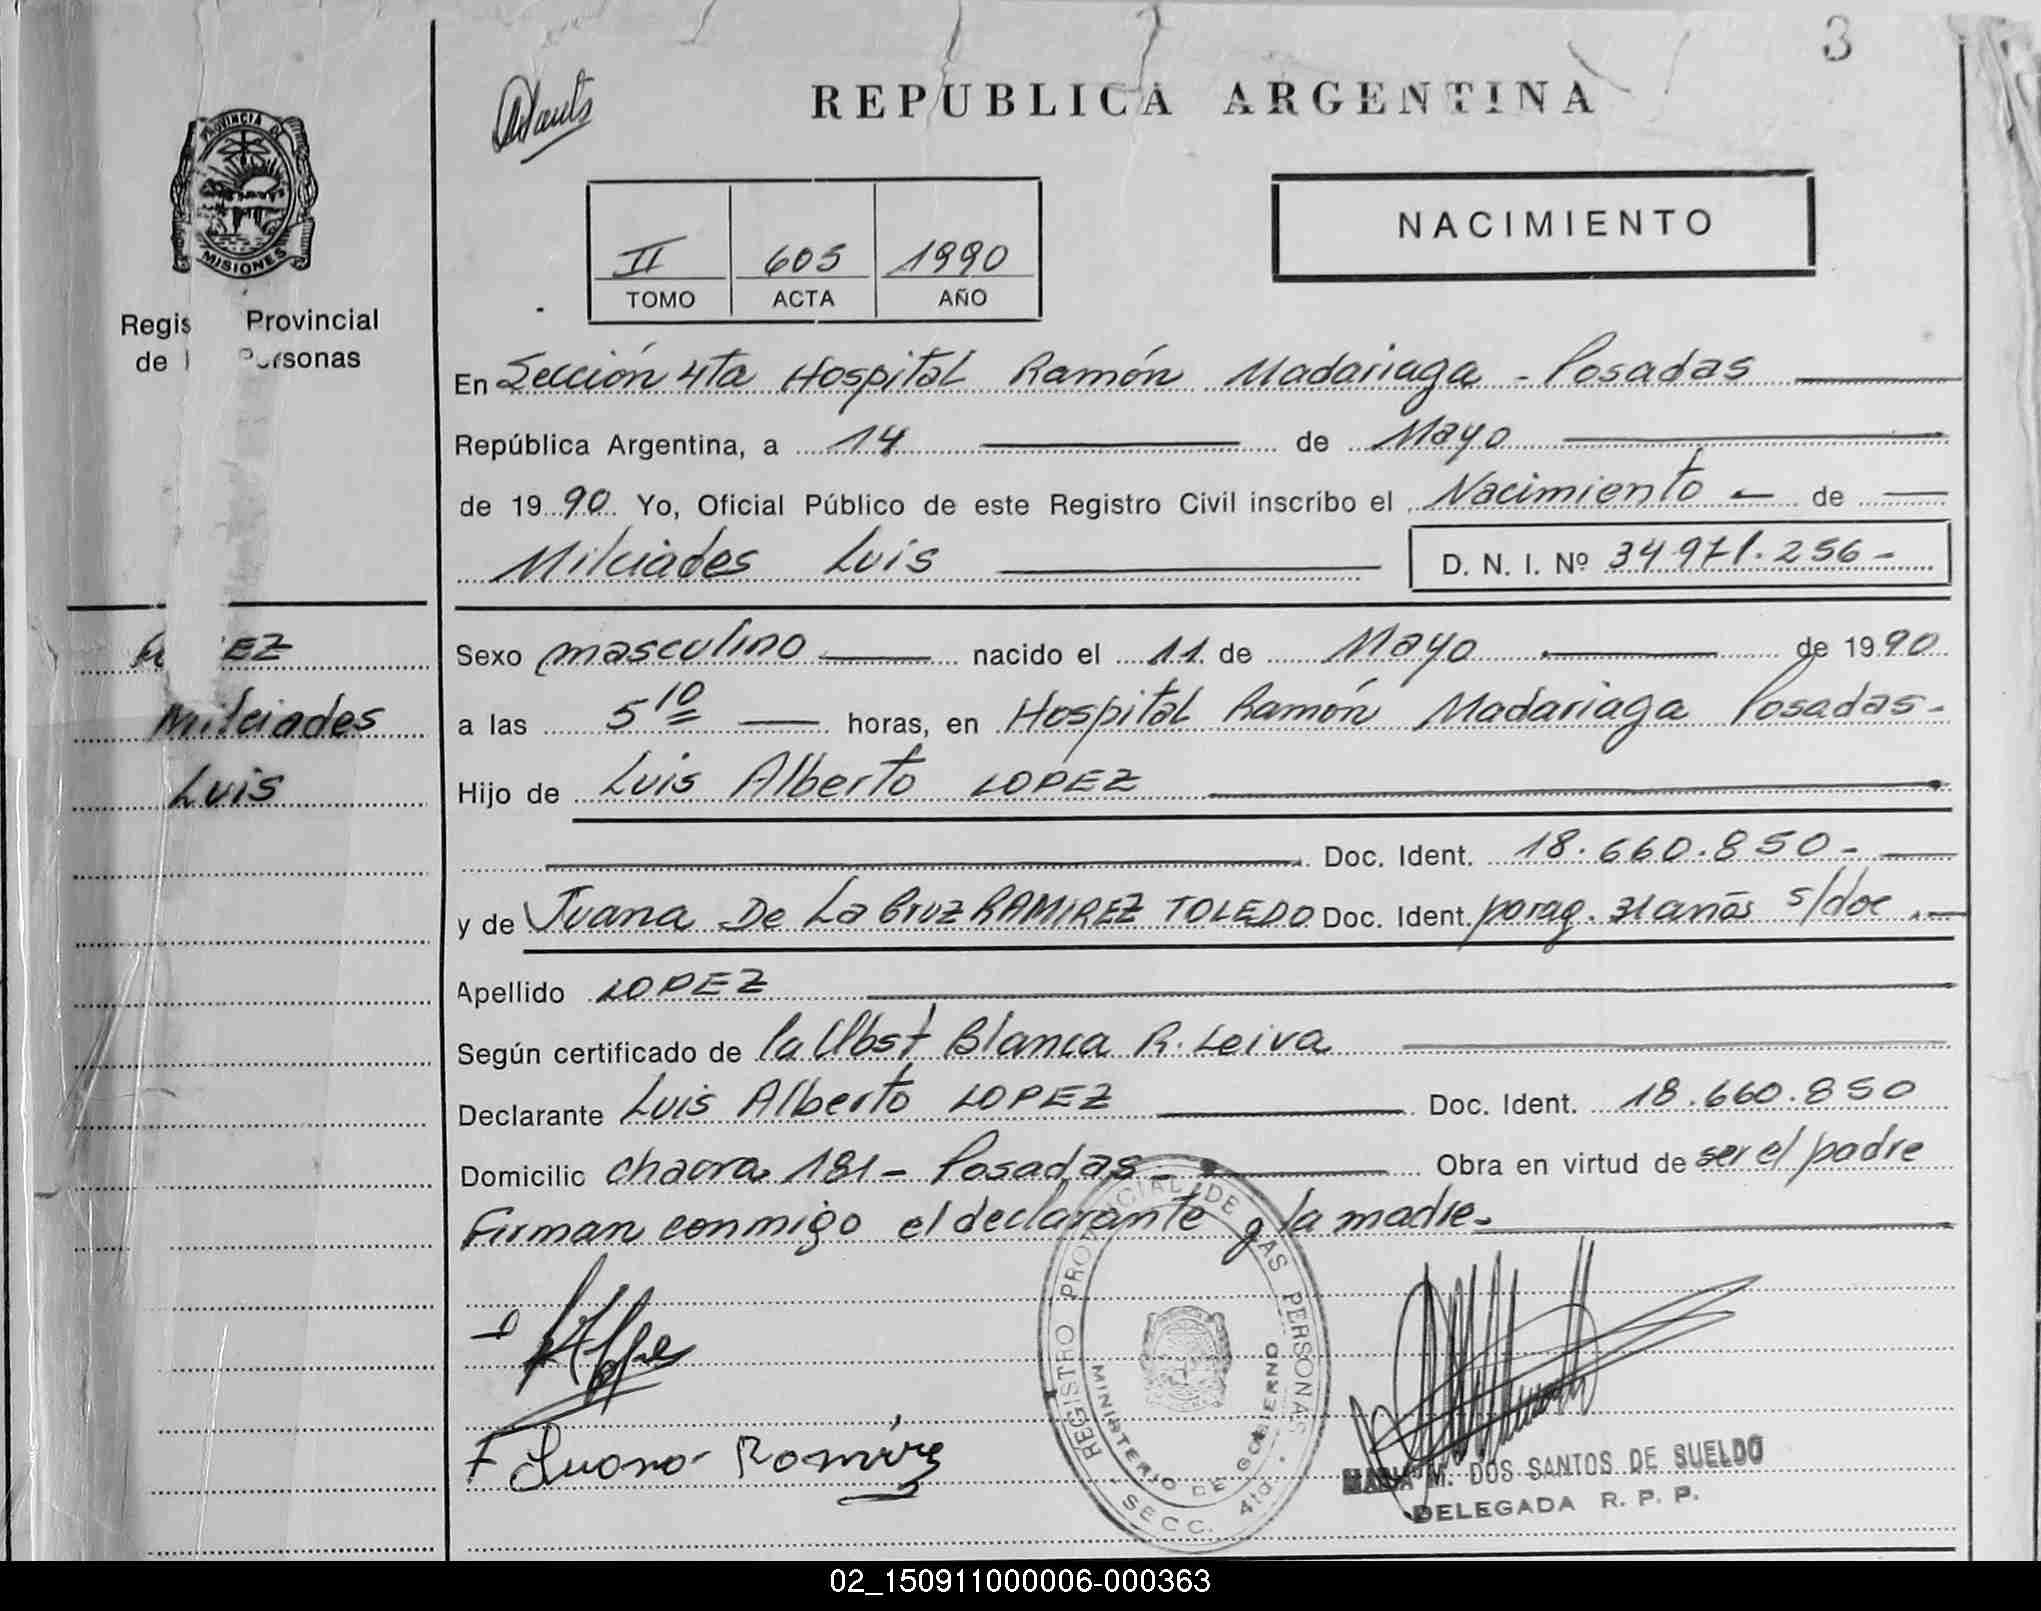 3
REPUBLICA ARGENTINA
PROVINCIA DE
MISIONES
Regis Provincial
de l Personas
II 605 1990
TOMO ACTA AÑO
NACIMIENTO
En Sección 4ta Hospital Ramón Madariaga - Posadas
República Argentina, a 14 de Mayo
de 1990 Yo, Oficial Público de este Registro Civil inscribo el Nacimiento - de
Milciades Luis D. N. I. Nº 34.971.256-
EZ
Milciades
Luis
Sexo masculino nacido el 11 de Mayo de 1990
a las 5 10 horas, en Hospital Ramón Madariaga Posadas-
Hijo de Luis Alberto LOPEZ
Doc. Ident. 18.660.850-
y de Juana De La Cruz RAMIREZ TOLEDO Doc. Ident. parag. 31 anõs s/doc.
Apellido LOPEZ
Según certificado de la Obst Blanca R. Leiva
Declarante Luis Alberto LOPEZ Doc. Ident. 18.660.850
Domicilio chacra 181- Posadas- Obra en virtud de ser el padre
Firman conmigo el declarante y la madre-
F Juana Ramirez
REGISTRO PROVINCIAL DE LAS PERSONAS
MINISTERIO DE GOBIERNO
SECC. 4ta.
MARIA M. DOS SANTOS DE SUELDO
DELEGADA R. P. P.
02_150911000006-000363